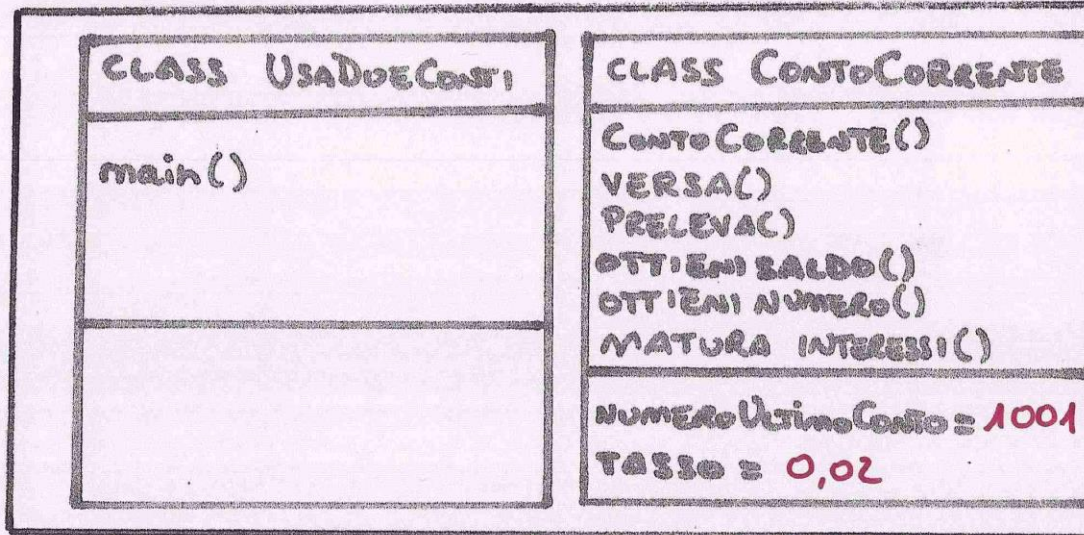 CLASS USADUECONTI
main()
CLASS CONTOCORRENTE
CONTOCORRENTE()
VERSA()
PRELEVA()
OTTIENI SALDO()
OTTIENI NUMERO()
MATURA INTERESSI()
NUMEROULTIMOCONTO = 1001
TASSO = 0,02